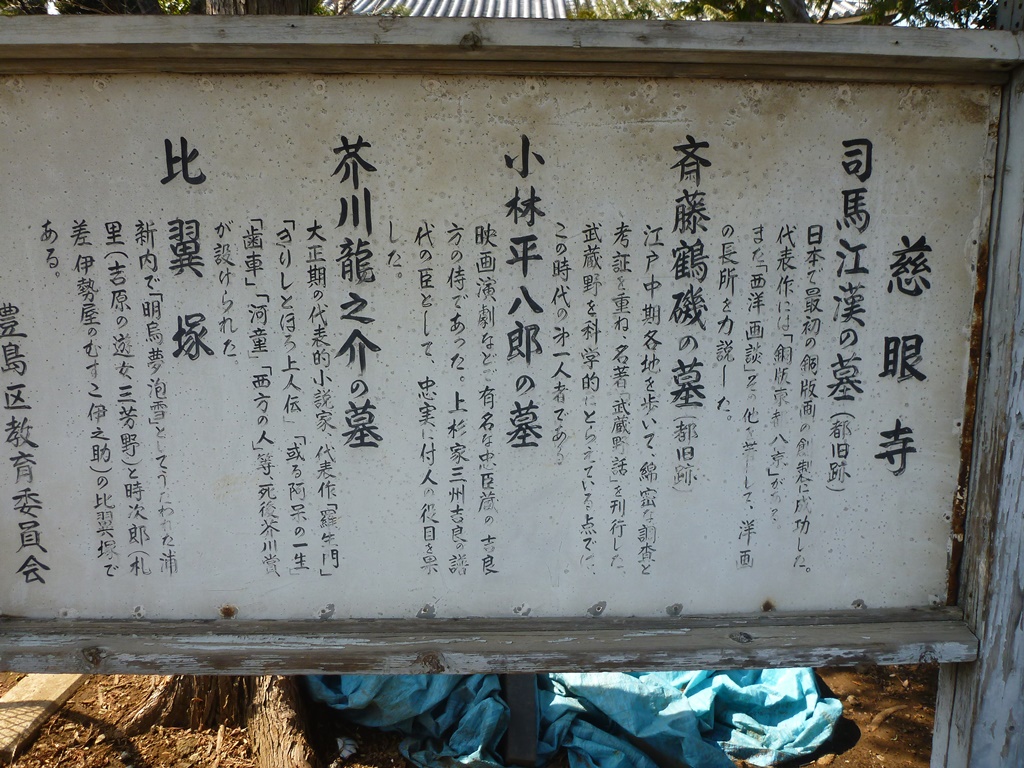 慈眼寺
司馬江漢の墓（都旧跡）
日本で最初の銅版画の創製に成功した。
代表作には「銅版東都八景」があり
また「西洋画談」その他を著して、洋画
の長所を力説した。
斎藤鶴磯の墓（都旧跡）
江戸中期各地を歩いて、綿密な調査と
考証を重ね、名著「武蔵野話」を刊行した。
武蔵野を科学的にとらえている点では、
この時代の第一人者である
小林平八郎の墓
映画演劇などで有名な忠臣蔵の吉良
方の侍であった。上杉家三州吉良の譜
代の臣として、忠実に付人の役目を果
した。
芥川龍之介の墓
大正期の代表的小説家、代表作「羅生門」
「きりしとほろ上人伝」「或る阿呆の一生」
「歯車」「河童」「西方の人」等、死後芥川賞
が設けられた。
比翼塚
新内で「明烏夢泡雪」としてうたわれた浦
里（吉原の遊女三芳野）と時次郎（札
差伊勢屋のむすこ伊之助）の比翼塚で
ある。
豊島区教育委員会